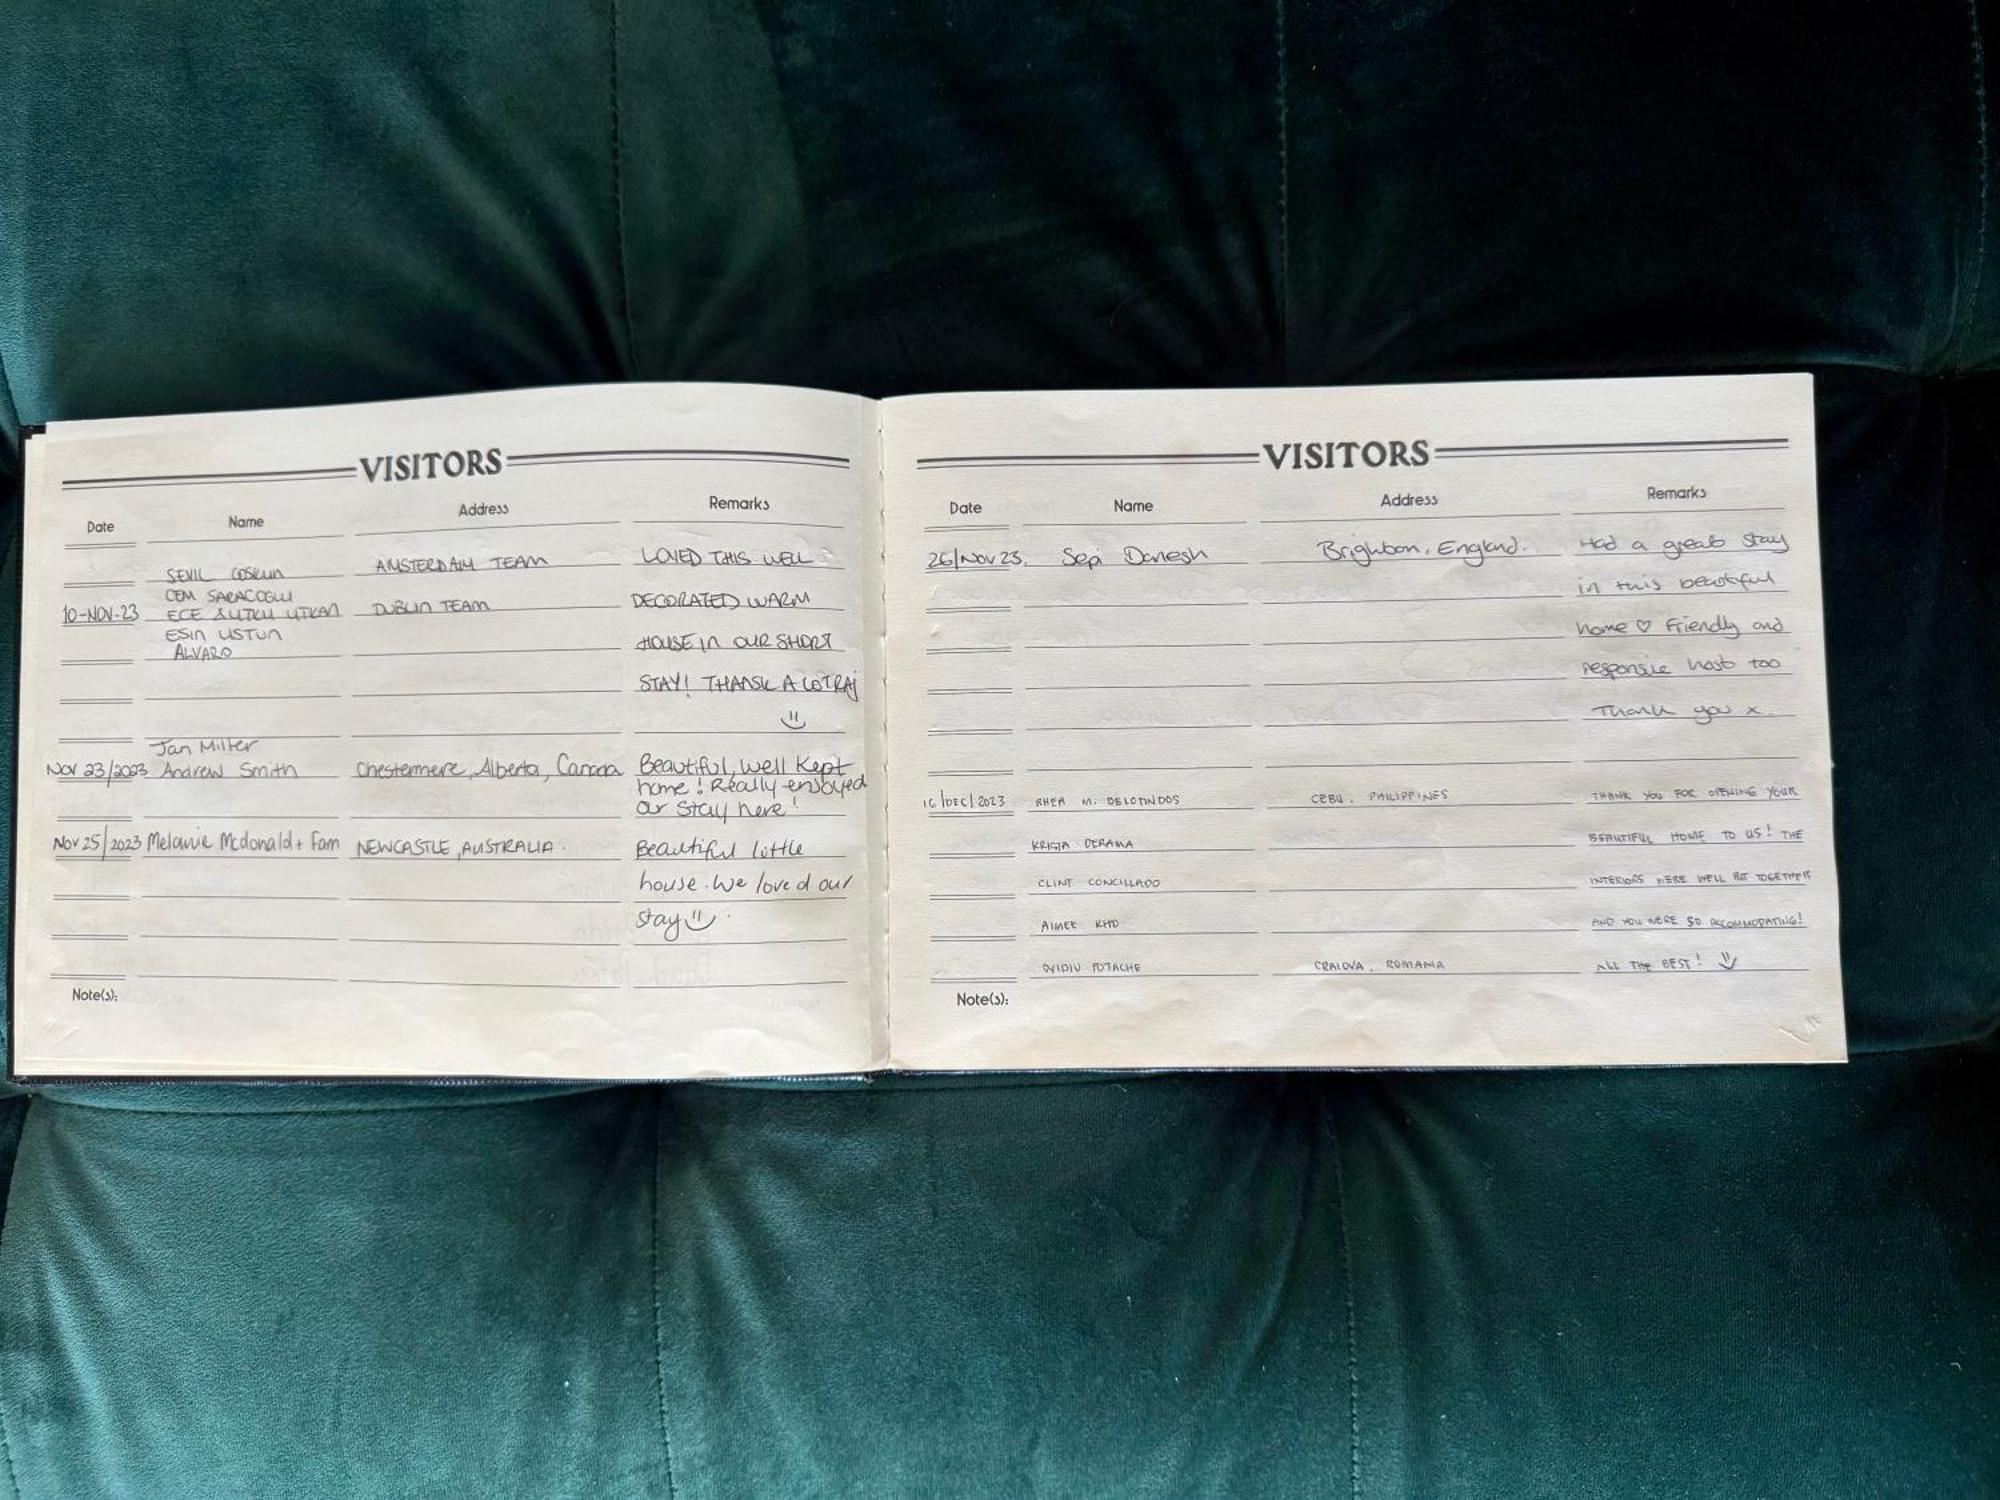 VISITORS
Date Name Address Remarks
SEVIL COSKUN AMSTERDAM TEAM LOVED THIS WELL
CEM SARACOGLU
10-NOV-23 ECE SUTKU UTKAN DUBLIN TEAM DECORATED WARM
ESIN USTUN
ALVARO HOUSE IN OUR SHORT
STAY! THANSK A LOT RAJ
Jan Miller
Nov 23/2023 Andrew Smith Chestermere, Alberta, Canada Beautiful, Well Kept
home! Really enjoyed
our stay here!
Nov 25/2023 Melanie Mcdonald + Fam NEWCASTLE, AUSTRALIA. Beautiful little
house. We loved our
stay
Note(s):
VISITORS
Date Name Address Remarks
26/Nov 23. Sepi Danesh Brighton, England. Had a great stay
in this beautiful
home ♡ Friendly and
responsive host too
Thank you x.
16/DEC/2023 RHEA M. DELOTINDOS CEBU, PHILIPPINES THANK YOU FOR OPENING YOUR
KRISTA DERAMA BEAUTIFUL HOME TO US! THE
CLINT CONCILLADO INTERIORS WERE WELL PUT TOGETHER
AIMEE KHO AND YOU WERE SO ACCOMMODATING!
OVIDIU POTACHE CRAIOVA, ROMANIA ALL THE BEST!
Note(s):